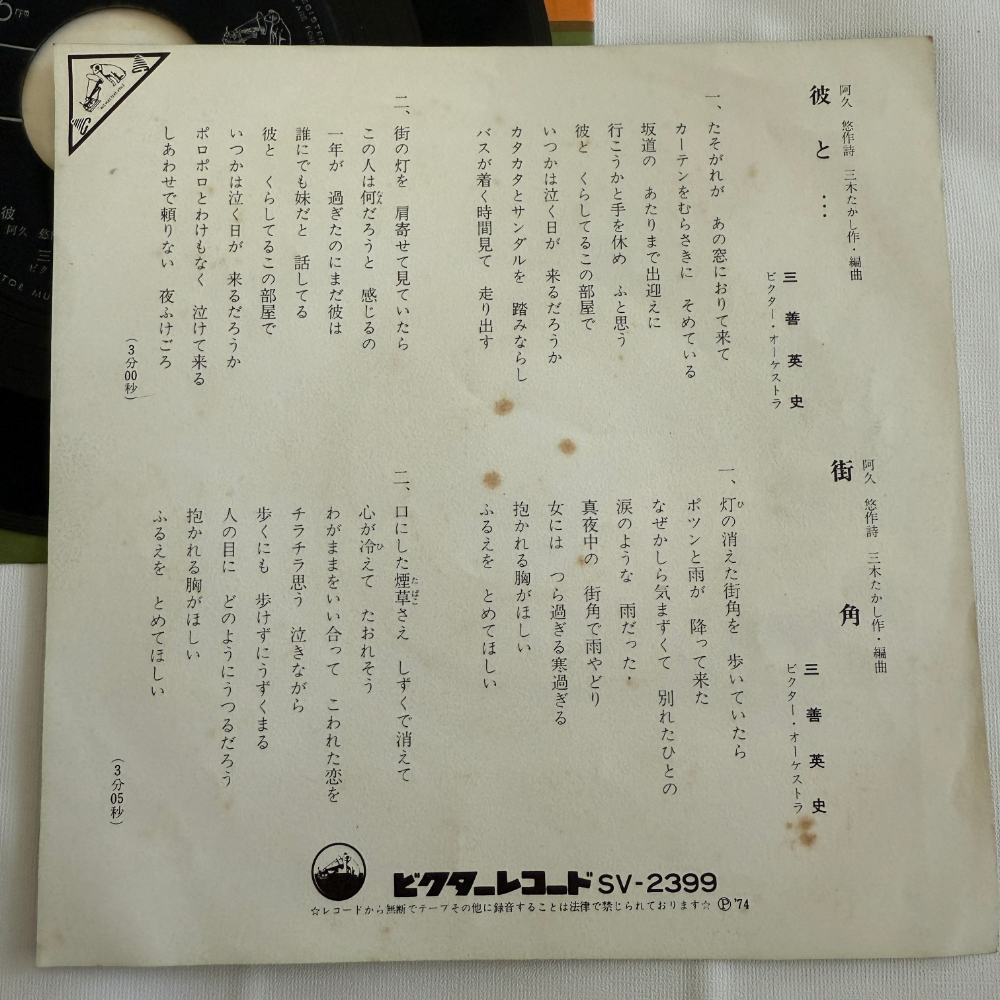 彼と…
阿久 悠作詩 三木たかし作・編曲
三善英史
ビクター・オーケストラ
一、たそがれが あの窓におりて来て
カーテンをむらさきに そめている
坂道の あたりまで出迎えに
行こうかと手を休め ふと思う
彼と くらしてるこの部屋で
いつかは泣く日が 来るだろうか
カタカタとサンダルを 踏みならし
バスが着く時間見て 走り出す
二、街の灯を 肩寄せて見ていたら
この人は何だろうと 感じるの
一年が 過ぎたのにまだ彼は
誰にでも妹だと 話してる
彼と くらしてるこの部屋で
いつかは泣く日が 来るだろうか
ポロポロとわけもなく 泣けて来る
しあわせで頼りない 夜ふけごろ
(3分00秒)
街角
阿久 悠作詩 三木たかし作・編曲
三善英史
ビクター・オーケストラ
一、灯の消えた街角を 歩いていたら
ポツンと雨が 降って来た
なぜかしら気まずくて 別れたひとの
涙のような 雨だった・
真夜中の 街角で雨やどり
女には つら過ぎる寒過ぎる
抱かれる胸がほしい
ふるえを とめてほしい
二、口にした煙草さえ しずくで消えて
心が冷えて たおれそう
わがままをいい合って こわれた恋を
チラチラ思う 泣きながら
歩くにも 歩けずにうずくまる
人の目に どのようにうつるだろう
抱かれる胸がほしい
ふるえを とめてほしい
(3分05秒)
ビクターレコード SV-2399
☆レコードから無断でテープその他に録音することは法律で禁じられております☆ Ⓟ'74